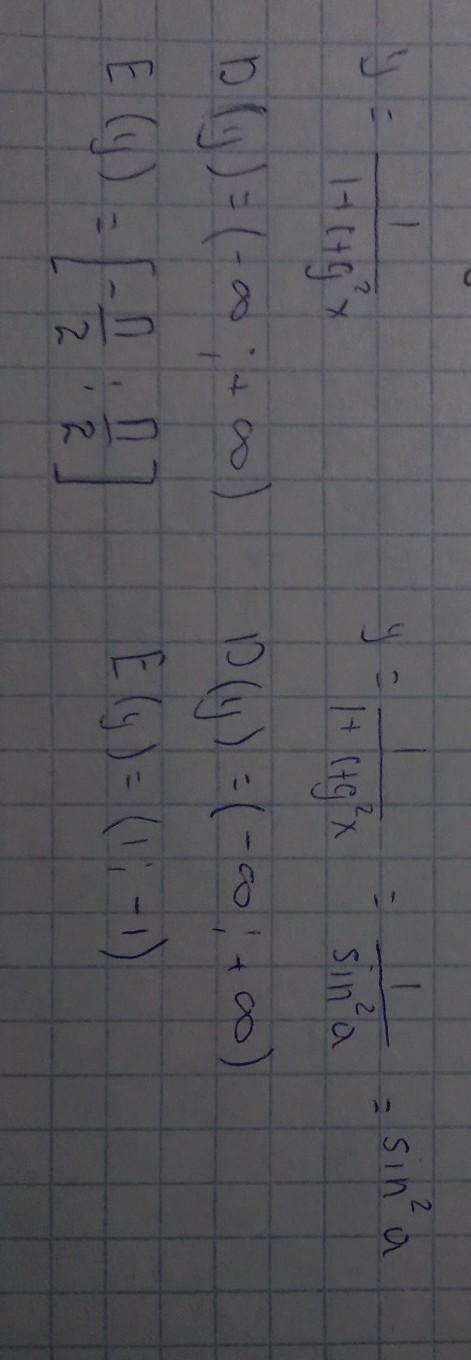 y = 1/(1+ctg²x)
D(y) = (-∞; +∞)
E(y) = [-П/2; П/2]
y = 1/(1+ctg²x) = 1/sin²a = sin²a
D(y) = (-∞; +∞)
E(y) = (1; -1)